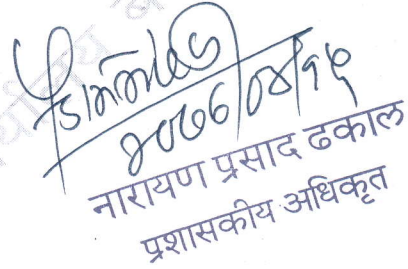 २०७६/०४/१५
नारायण प्रसाद ढकाल
प्रशासकीय अधिकृत